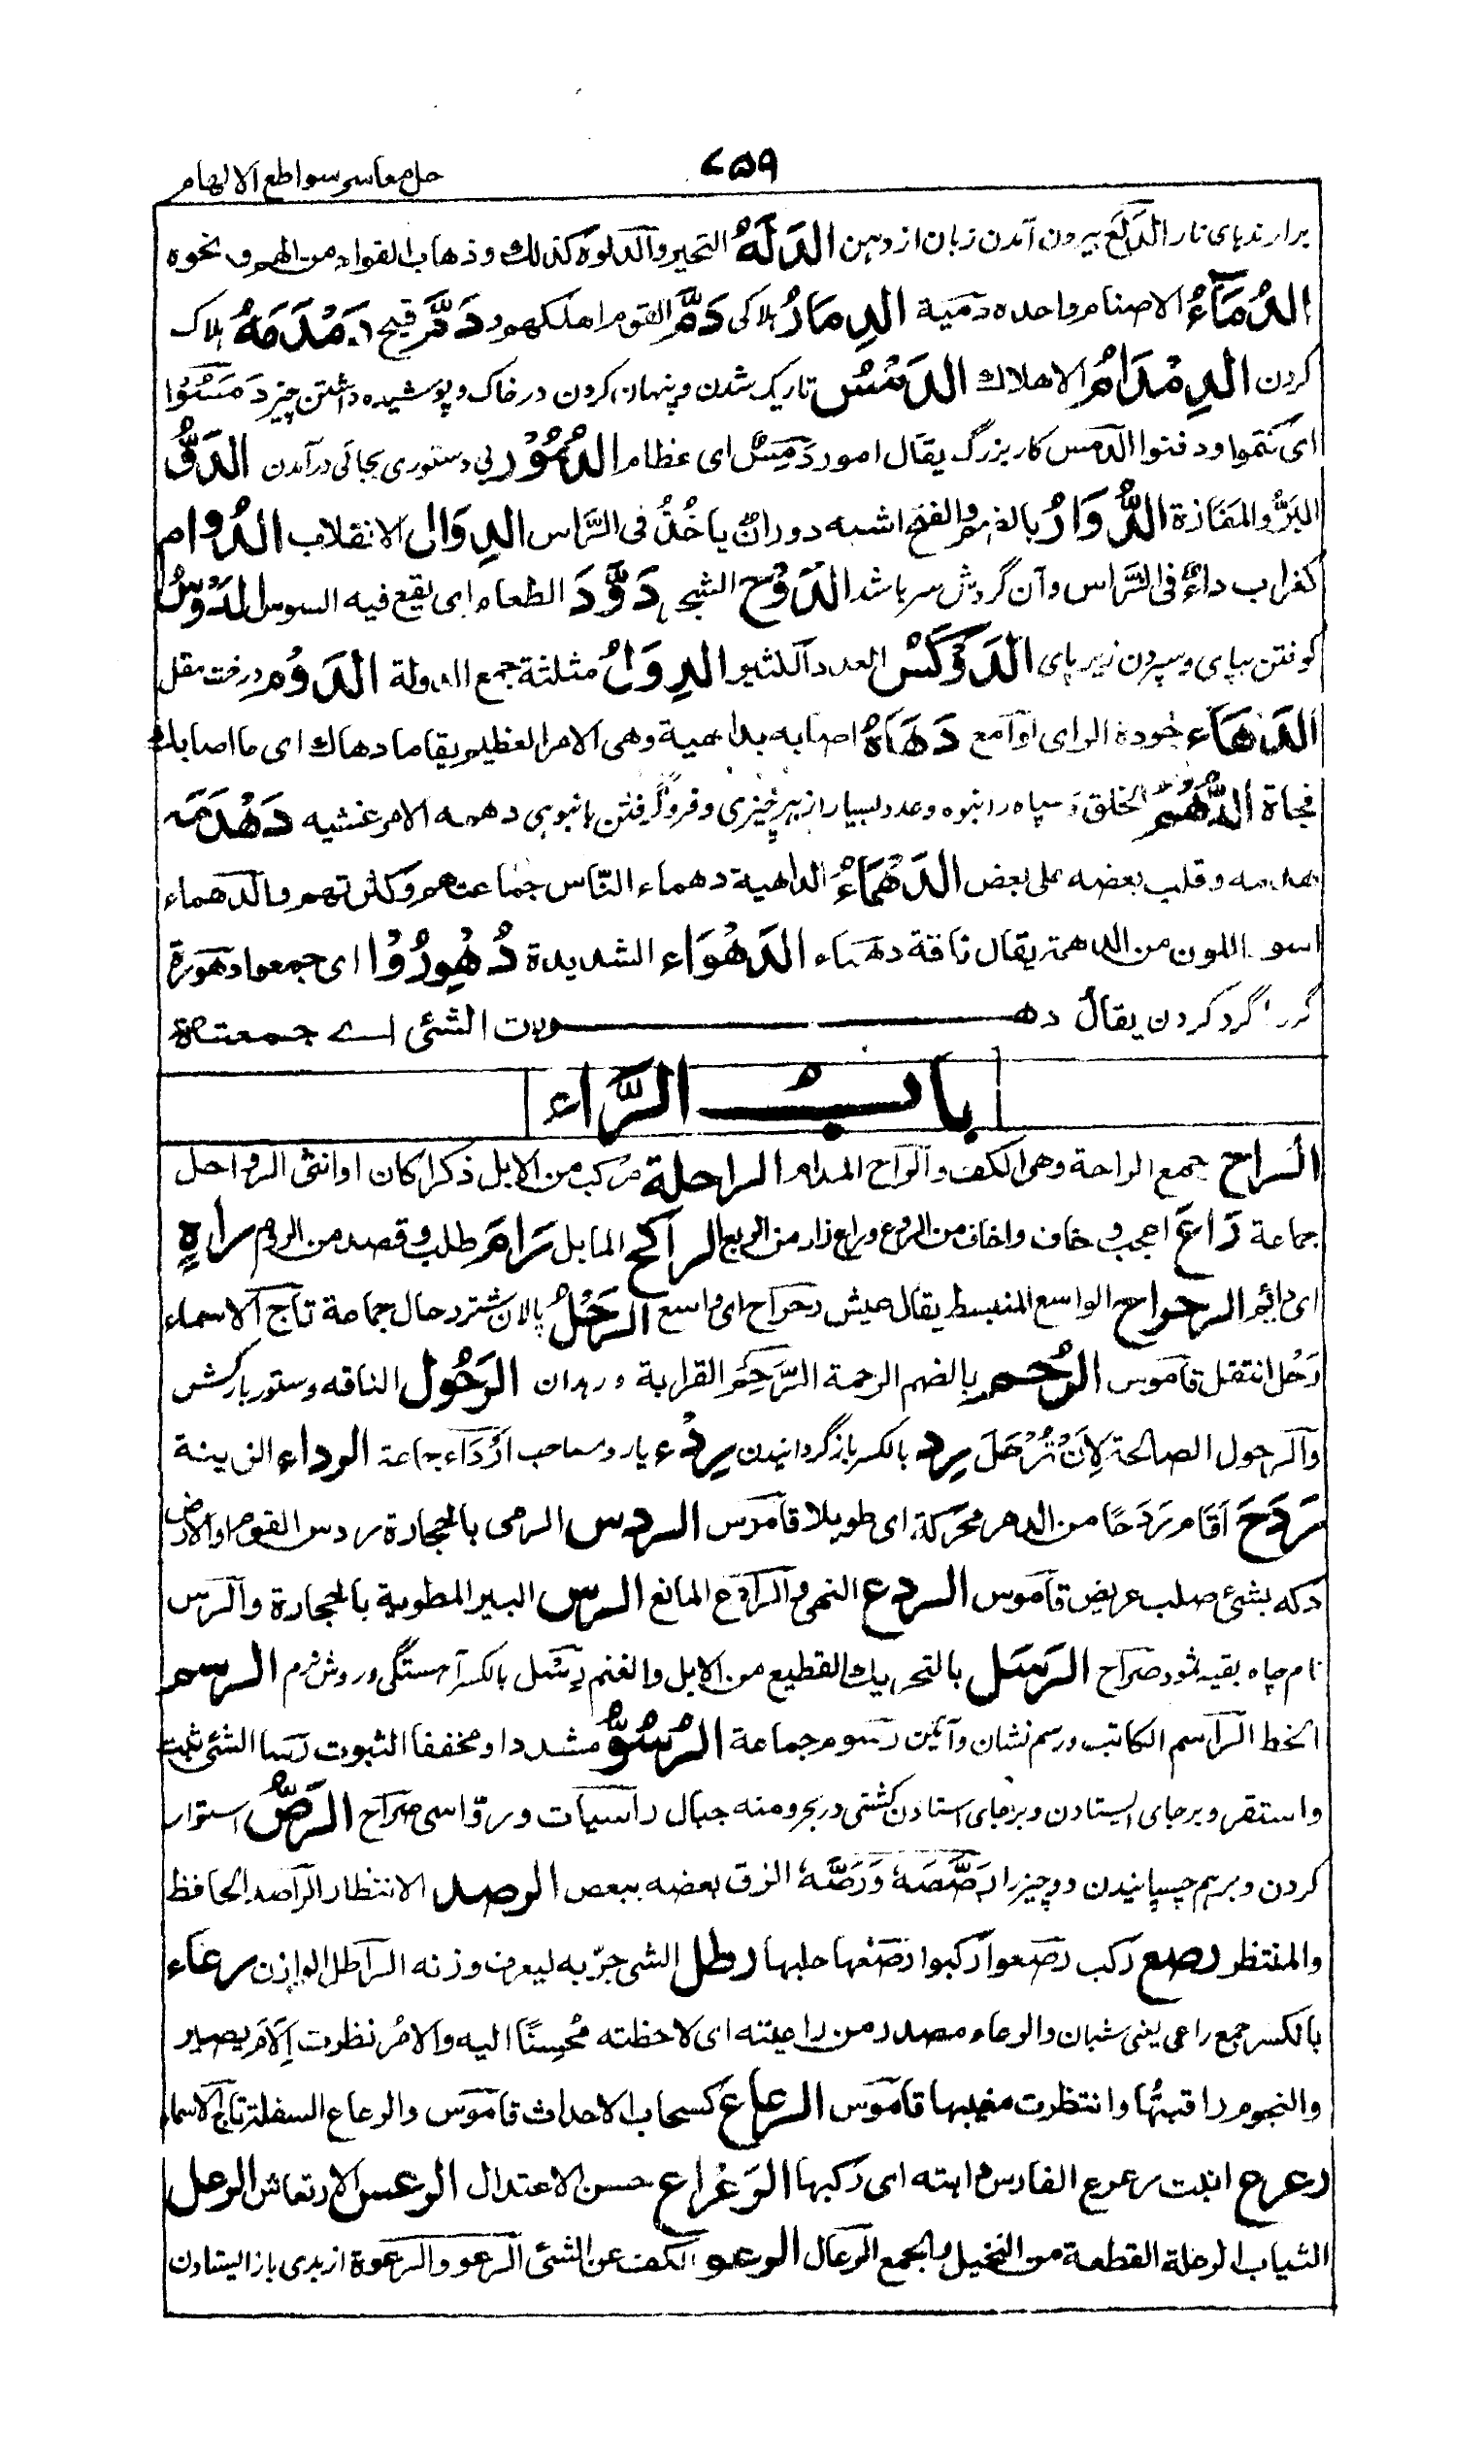 حل معاسر سواطع الالهام
۷۵۹
برارندبای نار الدلع بیرون آمدن زبان از دہن الدَلَهُ التحیر والدلوه کذلك وذهاب الفواد من الهم ونحوه
الدُمَآءُ الاصنام واحده دمية الدِمَارُ ہلاکی دَمَّرَ القوم اهلكهم ودَمَّرَ قبح دَمْدَمَهُ ہلاک
کردن الدِمْدَامُ الاهلاك الدَمْسُ تاریک شدن وپنہان کردن در خاک وپوشیده داشتن چیز دَمَسُوْا
ای کتموا ودفنوا الدمس کار بزرگ یقال امور دَمسٌ ای عظام الدُمُوْر بی دستوری بجائی درآمدن الدَوُّ
البَرُّ والمفازة الدُّوَارُ بالضم والفتح اشبه دوران یاخُذُ فی الرَّاس الدِوَال الانقلاب الدُوام
کغراب داءٌ فی الرَّاس وآن گردش سر باشد الدَوْح الشجر دَوَّدَ الطعام ای یقع فیه السوس الدَوْسُ
کوفتن بپای وسپردن زیر پای الدَوْكَسْ العدد الكثير الدِوَلُ مثلثة جمع الدولة الدَوْم درخت مقل
الدَهَآء جودة الرای اوآمع دَهَاهُ اصابه بداهية وهی الامر العظیم یقا ما دهاك ای ما اصابك
فجاة الدُّهْمُ الخلق وسپاه را نبوه وعدد بسیار از ہر چیزی وفروگرفتن بانبوہی دهمه الامر غشیه دَهْدَمَه
هدمه وقلب بعضه علی بعض الدَهْمَاءُ الداهية دهماء النّاس جماعتهم وکثرتهم والدهماء
اسود اللون من الدهمة یقال ناقة دهماء الدَهْوَاء الشدیدة دُهْوِرُوْا ای جمعوا دهورة
گرد گرد کردن یقال دهورت الشئی اے جمعته
بابُ الرَّاء
الراح جمع الراحة وهی الکف والراح المدام الراحلة مرکب من الابل ذکرا کان او انثی الرواحل
جماعة رَاعَ اعجب و خاف واخاف من الروع وراع زاد من الریع الراکح المایل رَامَ طلب وقصد من الروم راهٍ
ای دائم الرحراح الواسع المنبسط یقال عیش رحراح ای واسع الرَحْلُ پالان شتر رحال جماعة تاج الاسماء
رَحل انتقل قاموس الرُحم بالضم الرحمة الرَّحِم القرابة وزہدان الرَحُول الناقه وستور بارکش
والرحول الصالحة لِاَنْ تُرْحَلَ رِد بالکسر بازگردانیدن رِدْء یار ومصاحب اَرْدَاء جماعة الرداء الزینة
رَدَحَ اَقَام رَدَحًا من الدهر محرکة ای طویلا قاموس الردس الرمی بالحجارة ردس القوم او الارض
دکه بشئ صلب عریض قاموس الردع النهی والرادع المانع الرس البیر المطویة بالحجارة والرس
نام چاه بقیه ثمود صراح الرَسَل بالتحریك القطیع من الابل والغنم رِسْل بالکسر آہستگی وروش نرم الرسم
الخط الراسم الکاتب ورسم نشان وآئین رسوم جماعة الرُسُوُّ مشددا ومخففا الثبوت رسا الشئ ثبت
واستقر وبرجای ایستادن وبرجای استادن کشتی در بحر ومنه جبال راسیات ورواسی صراح الرَصُّ استوار
کردن وبرہم چسپانیدن دو چیز را رَصَّصَهٗ وَرَصَّهٗ الزق بعضه ببعض الرصد الانتظار الراصد الحافظ
والمنتظر رصع رکب رصعوا رکبوا رصعها حلبها رطل الشی جرّبه لیعرف وزنه الراطل الوازن رعاء
بالکسر جمع راعی یعنی شبان والرعاء مصدر من راعیته ای لاحظته مُحسِنًا الیه والامر نظرت اِلامَ یصیر
والنجوم راقبتُها وانتظرت مغیبها قاموس الرعاع کسحاب الاحداث قاموس والرعاع السفلة تاج الاسماء
رعرع انبت رعرع الفارس دابته ای رکبها الرَعْرَاع حسن الاعتدال الرعس الارتعاش الرعل
الثیاب الرعلة القطعة من الخیل والجمع الرعال الرعو الکف عن الشئ الرعو والرعوة از بدی باز ایستادن